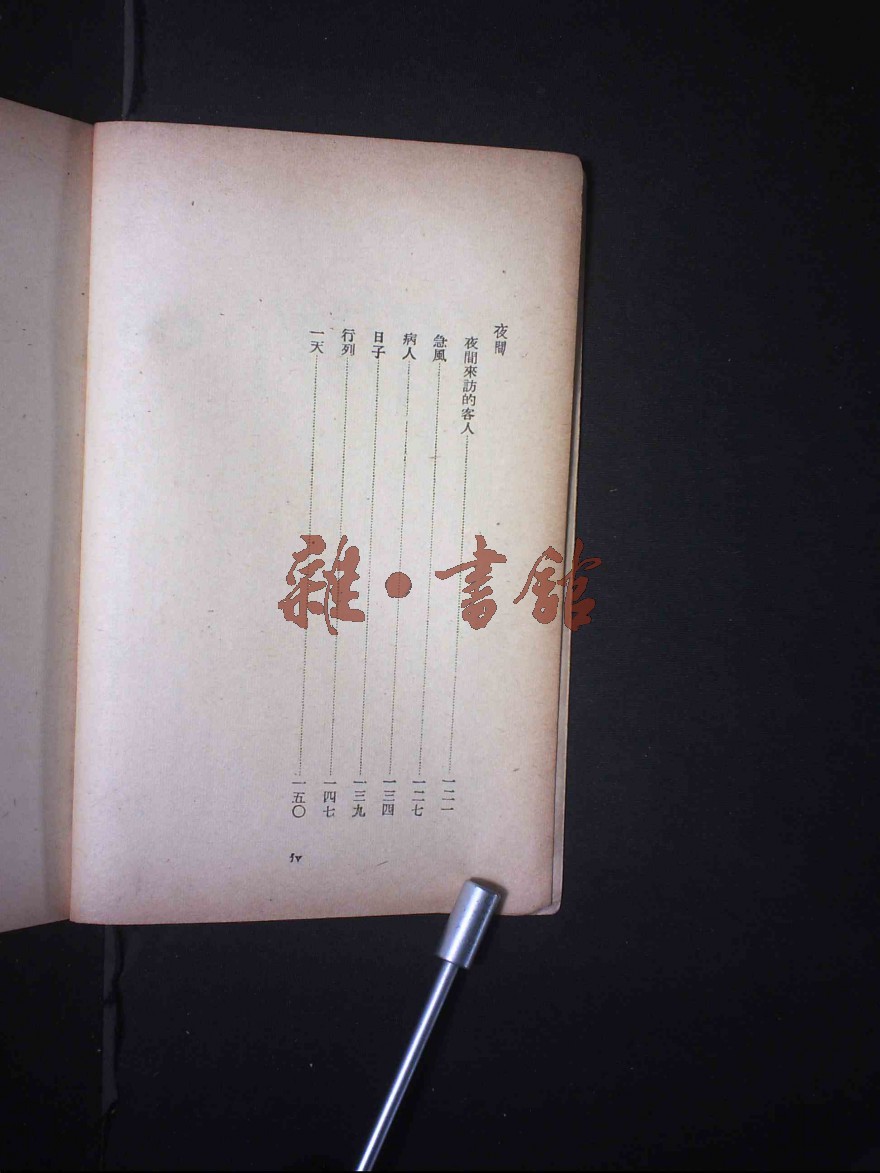 夜間
夜間來訪的客人…………一二一
急風…………一二七
病人…………一三四
日子…………一三九
行列…………一四七
一天…………一五〇
iv
雜·書館